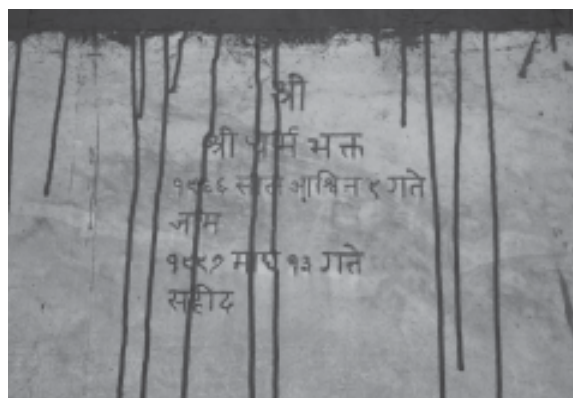 श्री
श्री धर्म भक्त
१९६६ साल आश्विन ९ गते
जन्म
१९९७ माघ १३ गते
सहीद